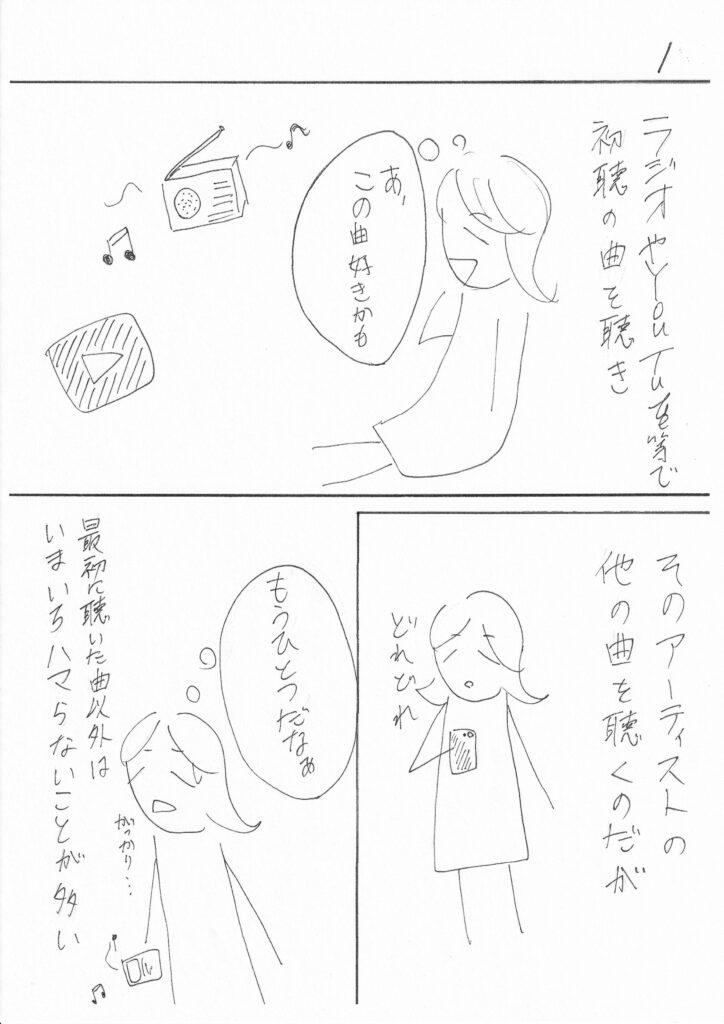 1
ラジオやYouTube等で
初聴の曲を聴き
あ、
この曲好きかも
そのアーティストの
他の曲を聴くのだが
どれどれ
もうひとつだなぁ
最初に聴いた曲以外は
いまいちハマらないことが多い
がっかり…